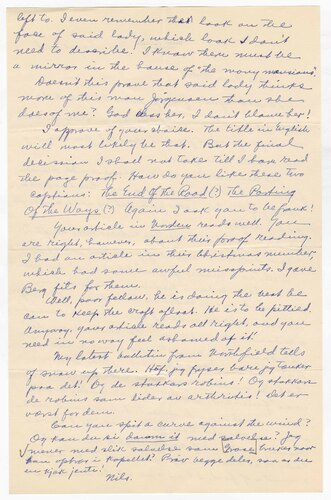 left to. I even remember that look on the
face of said lady, which look I don't
need to describe! I know there must be
a mirror in the house of "the many mansions".
Doesn't this prove that said lady thinks
more of this man Jörgensen than she
does of me? God bless her, I don't blame her!
I approve of your choice. The title in English
will most likely be that. But the final
decision I shall not take till I have read
the page proof. How do you like these two
captions: The End of the Road (?) The Parting
Of the Ways (?) Again I ask you to be frank!
Your article in Verden reads well. You
are right, however, about their proof reading.
I had an article in their Christmas number,
which had some awful misprints. I gave
Berg fits for them.
Well, poor fellow, he is doing the best he
can to keep the craft afloat. He is to be pitied.
Anyway, your article reads all right, and you
need in no way feel ashamed of it.
My latest bulletin from Northfield tells
of snow up there. Huf, jeg fryser bare jeg tænker
paa det! Og de stakkars robins! Og stakkars
de robins som lider av arthritis! Det er
værst for dem.
Can you spit a curve against the wind?
Og kan du si damn it med salvelse? Jeg
mener med slik salvelse som bruker naar
han ophøier i kapellet? Prøv begge deler, saa er du
en kjæk jente!
Nils.